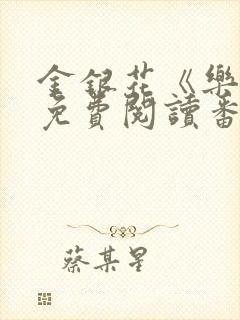 金銀花《樂
免費閱讀番
蔡某星